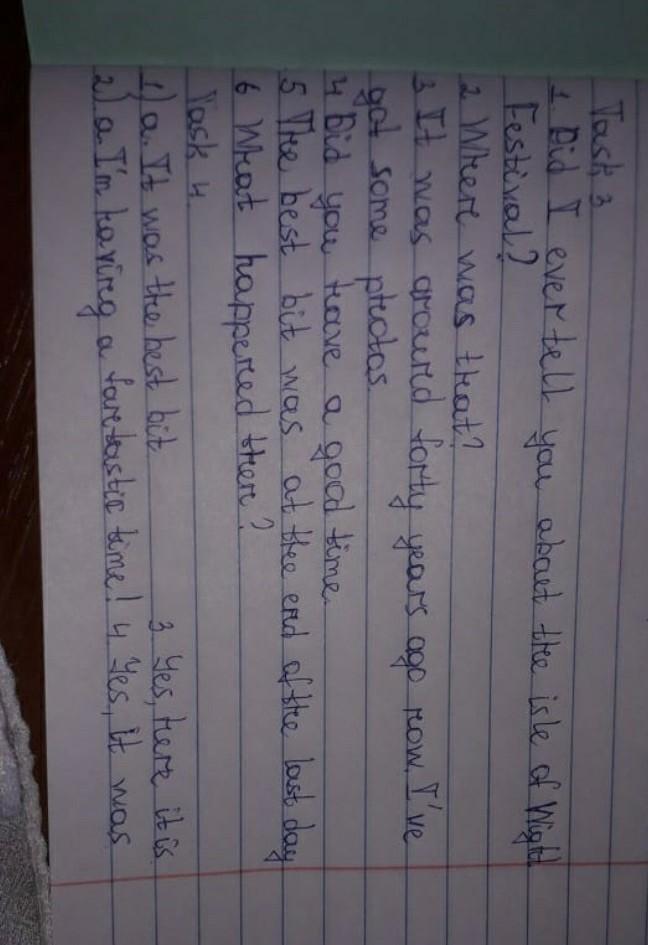 Task 3
1. Did I ever tell you about the isle of Wight
Festival?
2 Where was that?
3 It was around forty years ago now. I've
got some photos
4 Did you have a good time.
5 The best bit was at the end of the last day
6 What happened there?
Task 4
1) a. It was the best bit 3 Yes, here it is
2) a. I'm having a fantastic time! 4 Yes, it was